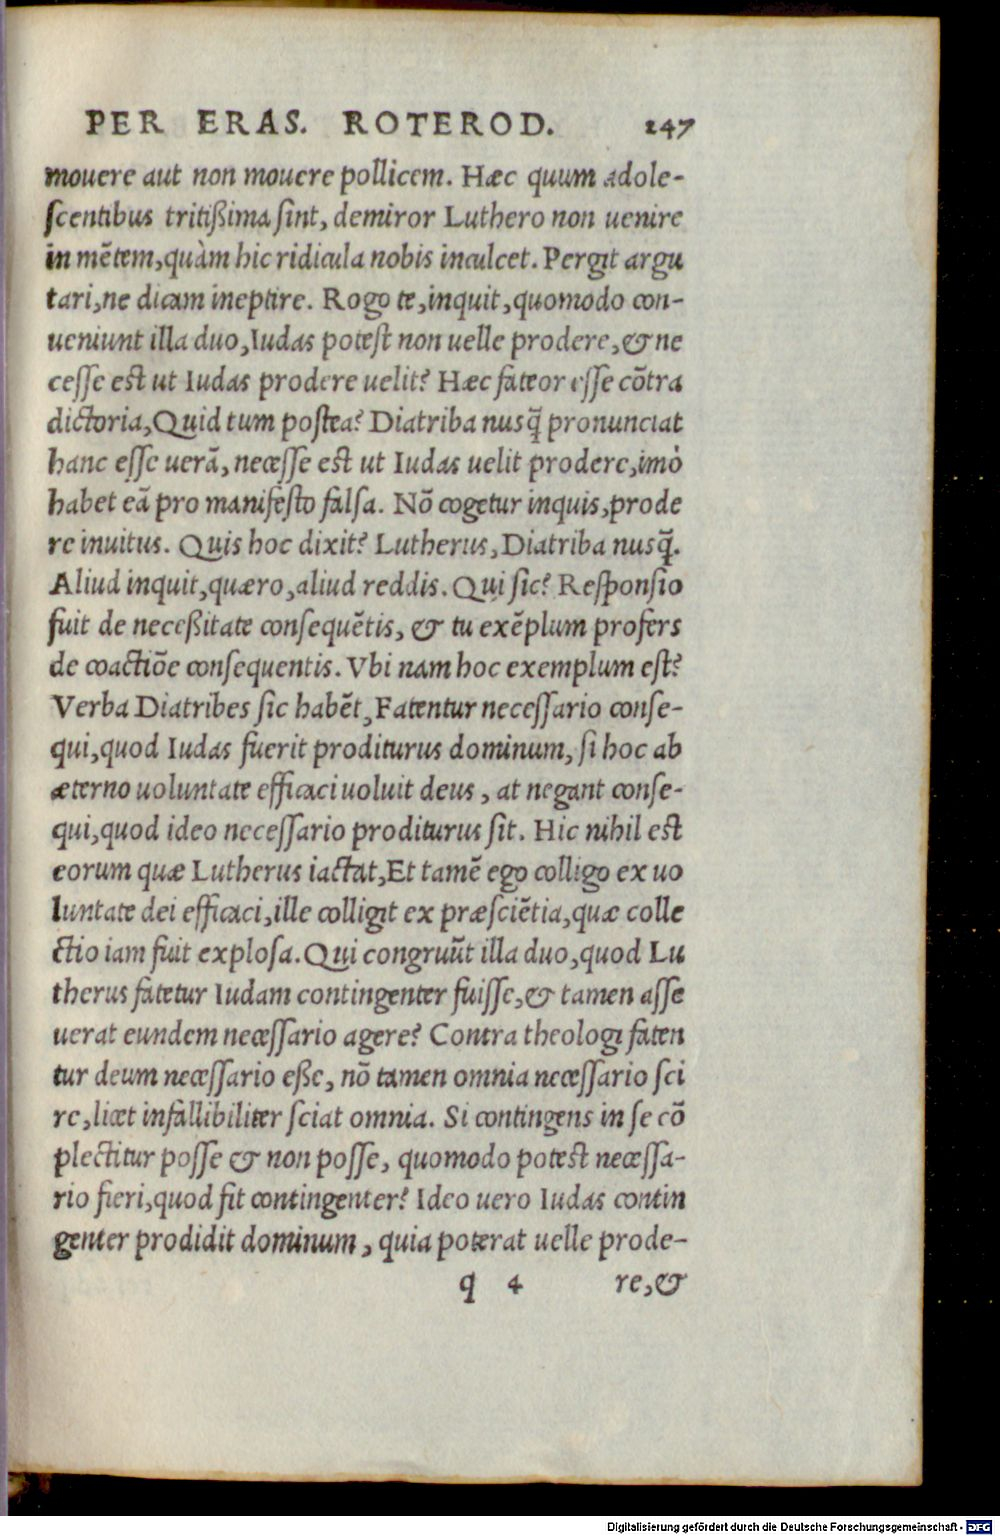 PER ERAS. ROTEROD. 247
mouere aut non mouere pollicem. Hæc quum adole-
scentibus tritißima sint, demiror Luthero non uenire
in mẽtem,quàm hic ridicula nobis inculcet. Pergit argu
tari,ne dicam ineptire. Rogo te,inquit,quomodo con-
ueniunt illa duo,Iudas potest non uelle prodere,& ne
cesse est ut Iudas prodere uelit? Hæc fateor esse cõtra
dictoria,Quid tum postea? Diatriba nusq̃ pronunciat
hanc esse uerã, necesse est ut Iudas uelit prodere,imò
habet eã pro manifesto falsa. Nõ cogetur inquis,prode
re inuitus. Quis hoc dixit? Lutherus,Diatriba nusq̃.
Aliud inquit,quæro,aliud reddis. Qui sic? Responsio
fuit de neceßitate consequẽtis, & tu exẽplum profers
de coactiõe consequentis. Vbi nam hoc exemplum est?
Verba Diatribes sic habẽt,Fatentur necessario conse-
qui,quod Iudas fuerit proditurus dominum, si hoc ab
æterno uoluntate efficaci uoluit deus, at negant conse-
qui,quod ideo necessario proditurus sit. Hic nihil est
eorum quæ Lutherus iactat,Et tamẽ ego colligo ex uo
luntate dei efficaci,ille colligit ex præsciẽtia,quæ colle
ctio iam fuit explosa.Qui congruũt illa duo,quod Lu
therus fatetur Iudam contingenter fuisse,& tamen asse
uerat eundem necessario agere? Contra theologi faten
tur deum necessario eße, nõ tamen omnia necessario sci
re,licet infallibiliter sciat omnia. Si contingens in se cõ
plectitur posse & non posse, quomodo potest necessa-
rio fieri,quod fit contingenter? Ideo uero Iudas contin
genter prodidit dominum, quia poterat uelle prode-
q 4 re,&
Digitalisierung gefördert durch die Deutsche Forschungsgemeinschaft - DFG